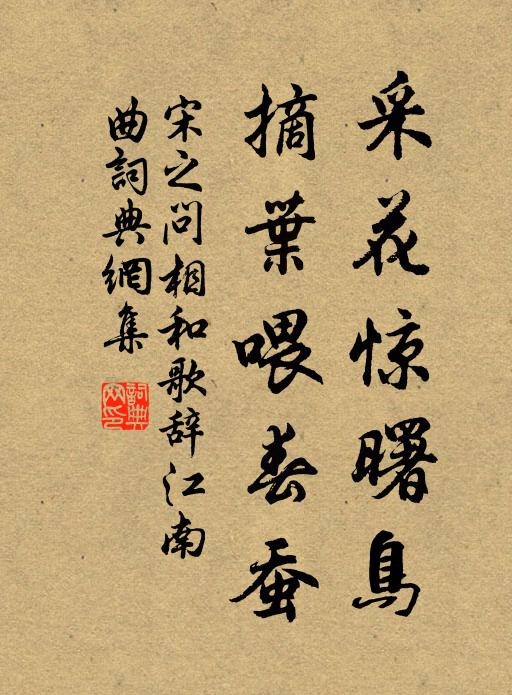 采花惊曙鳥
摘葉喂春蚕
宋之问相和歌辞江南
曲詞典網集
詞典网印